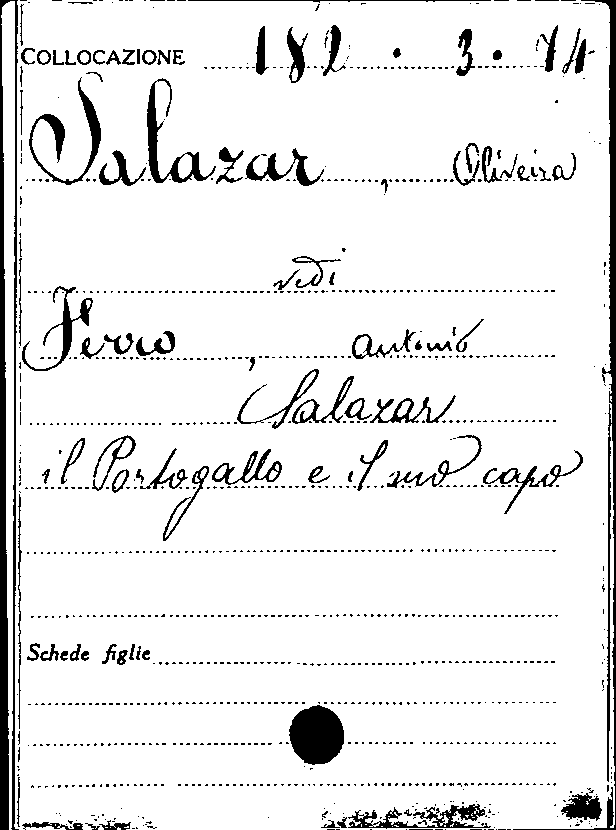 COLLOCAZIONE 182 . 3 . 74
Salazar , Oliveira
vedi
Ferro , Antonio
Salazar
il Portogallo e il suo capo
Schede figlie